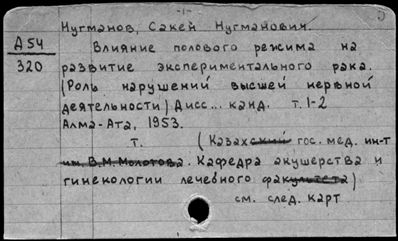 Нугманов, Сакей Нугманович.
А54
320
Влияние полового режима на
развитие экспериментального рака.
(Роль нарушений высшей нервной
деятельности) Дисс... канд. т. 1-2
Алма-Ата, 1953.
т. (Казахский гос. мед. ин-т
им. В.М. Молотова. Кафедра акушерства и
гинекологии лечебного факультета)
см. след. карт